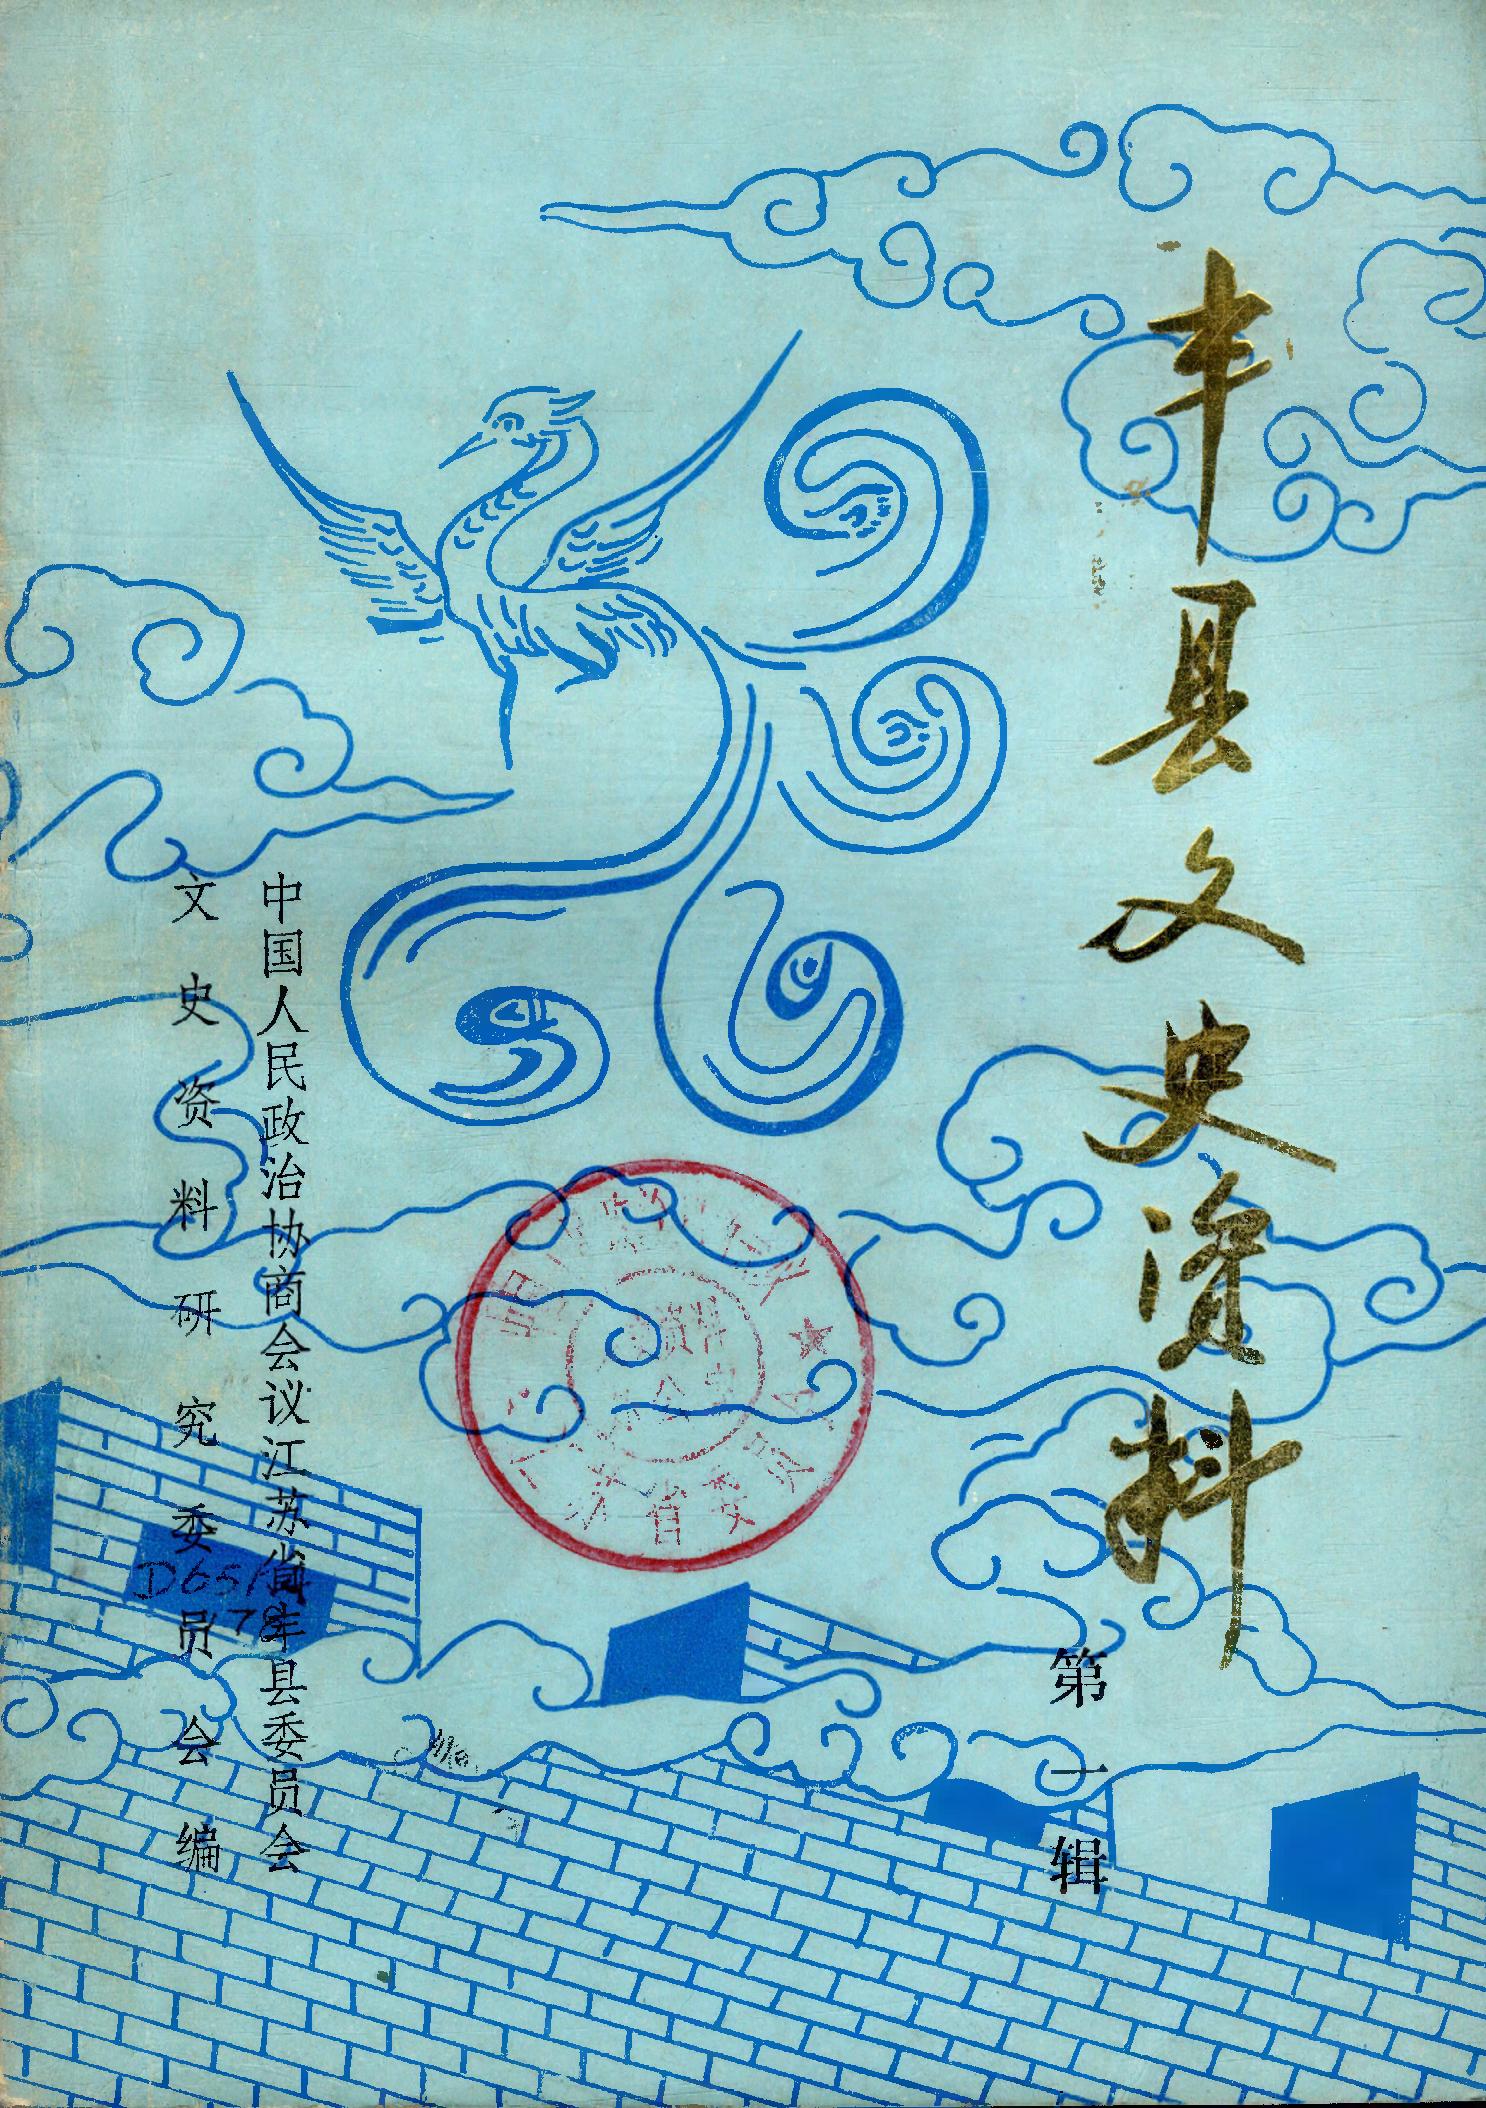 丰县文史资料
第一辑
中国人民政治协商会议江苏省丰县委员会
文史资料研究委员会编
D651
78